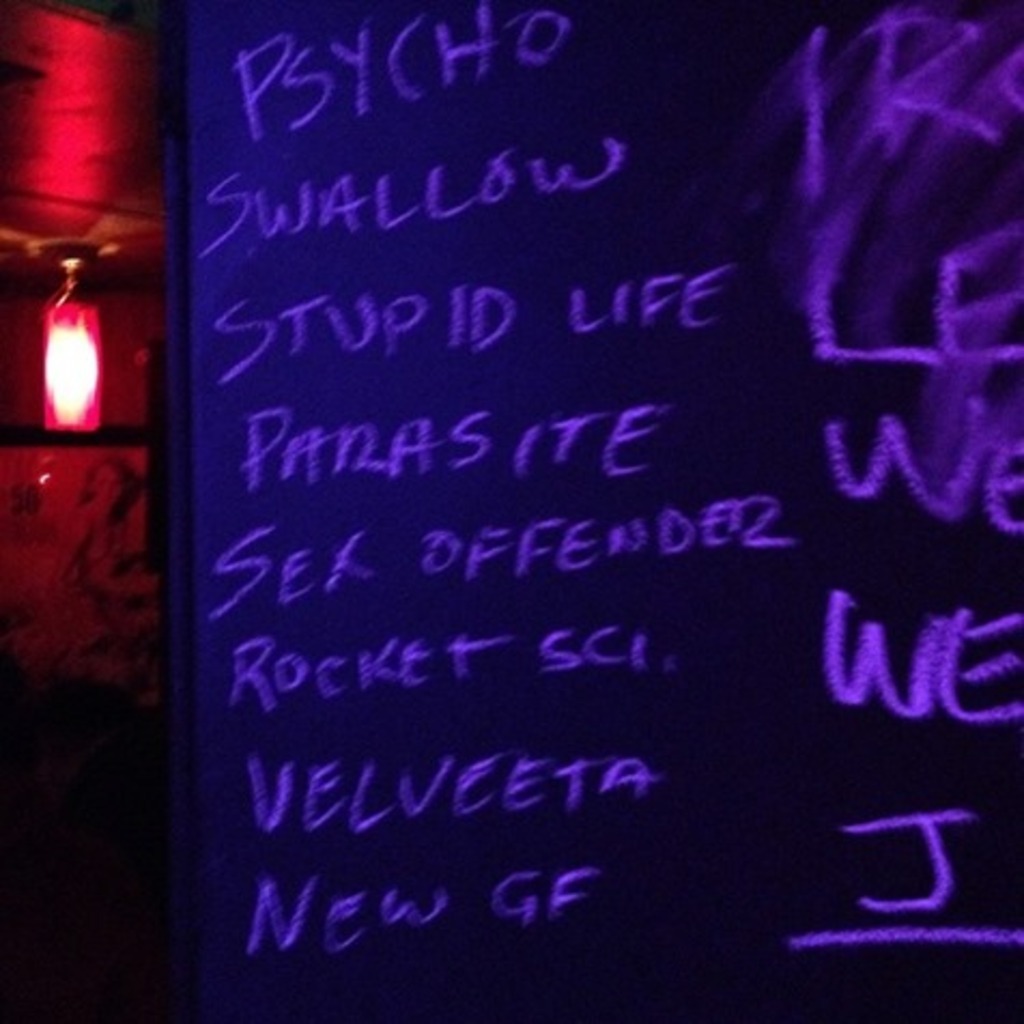 PSYCHO
SWALLOW
STUPID LIFE
PARASITE
SEX OFFENDER
ROCKET SCI.
VELVEETA
NEW GF
LE
WE
WE
J